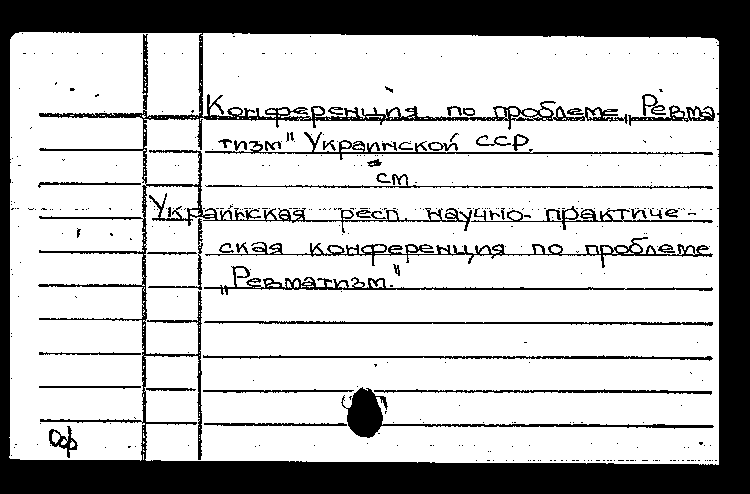 Конференция по проблеме „Ревма
тизм" Украинской ССР.
см.
Украинская респ. научно-практиче-
ская конференция по проблеме
„Ревматизм."